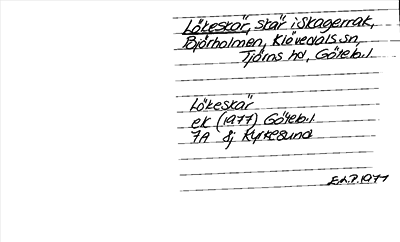 Lökeskär, skär i Skagerrak,
Björholmen, Klövedals sn,
Tjörns hd, Göteb. l.
Lökeskär
ek (1977) Göteb. l.
7A Sj Kyrkesund
E.L.P. 1977